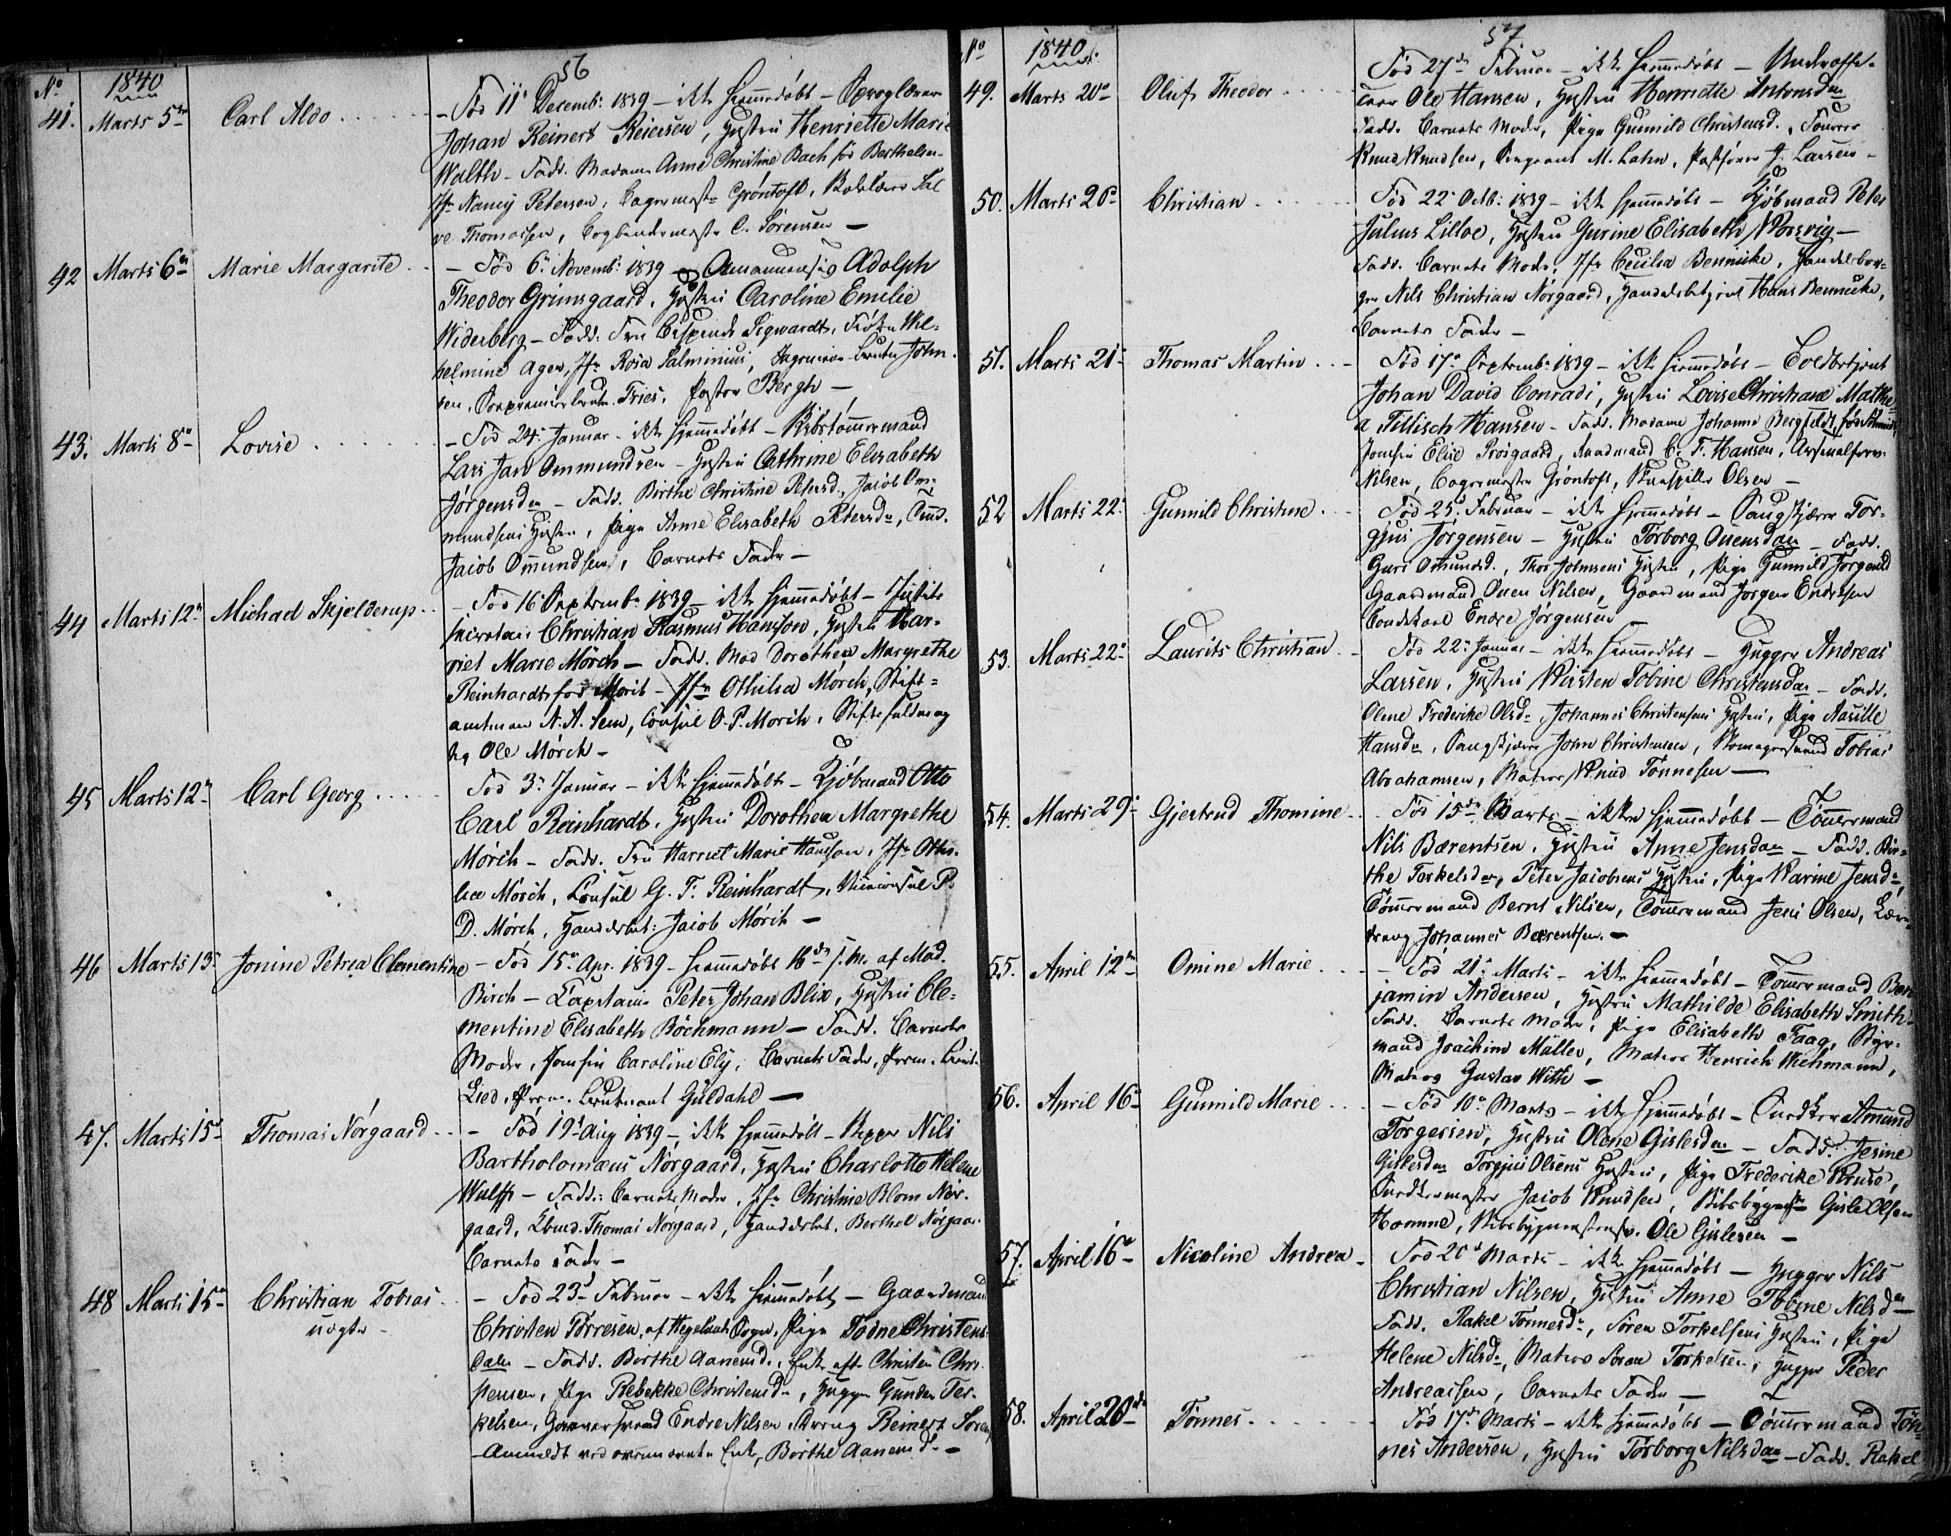 56
No 1840
41. Marts 5te Carl Aldo
Fød 11 Decemb: 1839 – ikke hjemmedøbt –
Johan Reinert Reiersen, Hustru Henriette Marie
Walth – Fadd. Madame Anne Christine Bach fød Berthelsen
Jfr Nancy Petersen, Bagermester Grøntoft,
Thomassen, Bogbindermester C. Sørensen –
42 Marts 6te Marie Margarite
– Fød 6 Novemb: 1839 – Amanuensis Adolph
Theodor Grimsgaard, Hustru Caroline Emilie
Widerberg – Fadd. Fru Sigwardt, Frøken Wil-
helmine Ager, Jfr Rosa Palminius, John-
sen, Fries, Pastor Bergh –
43. Marts 8de Lovise
– Fød 24 Januar – ikke hjemmedøbt – Skibstømmermand
Lars Ommundsen – Hustru Cathrine Elisabeth
Jørgensdr – Fadd. Birthe Christine Petersd., Jacob Om-
mundsens Hustru, Pige Anne Elisabeth Petersdr,
Jacob Omundsen, Barnets Fader –
44 Marts 12te Michael Skjelderup
– Fød 16 Septemb: 1839 – ikke hjemmedøbt –
Christian Rasmus Hansson, Hustru Har-
riet Marie Mörch – Fadd. Mad Dorothea Margrethe
Reinhardt fød Mörch – Jfr Othilia Mörch, Stift-
amtman N. A. Sem, Consul O. P. Mörch, Stiftsfuldmæg
tig Ole Mörch –
45 Marts 12te Carl Georg
Fød 3 Januar – ikke hjemmedøbt – Kjøbmand Otto
Carl Reinhardt, Hustru Dorothea Margrethe
Mörch – Fadd. Fru Harriet Marie Hansson, Jfr Othi-
lia Mörch, Consul G. F. Reinhardt, Viceconsul P.
D. Mörch, Handelsbet: Jacob Mörch –
46 Marts 13 Jonine Petrea Clementine
– Fød 15 Apr. 1839 – hjemmedøbt 16de s. M. af Mad.
Birch – Capitain Peter Johan Blix, Hustru Cle-
mentine Elisabeth Böchmann – Fadd. Barnets
Moder, Jomfru Caroline Ely, Barnets Fader, Prem. Lieut.
Lied, Prem. Lieutenant Guldahl –
47. Marts 15 Thomas Nørgaard
– Fød 19 Aug 1839 – ikke hjemmedøbt – Skipper Nils
Bartholomæus Nørgaard, Hustru Charlotte Helene
Wulff – Fadd: Barnets Moder, Jfr Christine Blom Nør-
gaard, Thomas Nørgaard, Handelsbet. Berthel Nørgaard
Barnets Fader –
48 Marts 15 Christian Tobias
uægte
– Fød 23 Februar – ikke hjemmedøbt – Gaardmand
Christen Tørresen, af Hegelands Sogn, Pige Todne Christens-
datr – Fadd. Birthe Aanensd., Enke efter Christen Chri-
stensen, Pige Rebekke Christensdr, Hugger Gunder Ter-
kelsen, Endre Nilsen, Dreng Reinert Søren
– Anmeldt ved ovennævnte Enke, Birthe Aanensd. –
57
No 1840
49. Marts 20de Oluf Theodor
Fød 27de Februar – ikke hjemmedøbt – Underoffi-
ceer Ole Hansen, Hustru Henriette Antonsdr
Fadd. Barnets Moder, Pige Gunnild Christensd.,
Knud Knudsen, Sergeant M. Lahn, J. Larsen –
50. Marts 20de Christian
Fød 22 Octb: 1839 – ikke hjemmedøbt – Kjøbmand Peter
Julius Lilloe, Hustru Gurine Elisabeth Korsvig –
Fadd. Barnets Moder, Jfr Cecilia Bennicke, Handelsbor-
ger Nils Christian Nørgaard, Handelsbetjent Hans Bennicke,
Barnets Fader –
51. Marts 21 Thomas Martin
Fød 17 Septemb: 1839 – ikke hjemmedøbt – Toldbetjent
Johan David Conradi, Hustru Lovise Christiane Mathe
a Tillisch Hansen – Fadd. Madame Johanne Bergfeldt,
Jomfru Elise Prøsgaard, C. F. Hansen,
Nilsen, Bagermester Grøntoft, Olsen –
52 Marts 22 Gunnild Christine
Fød 25 Februar – ikke hjemmedøbt – Sangskjærer Tor-
gjus Jørgensen – Hustru Torborg Onensdatr – Fadd.
Guri Osmundsd., Thor Johnsens Hustru, Pige Gunnild Jørgensd
Gaardmand Onen Nilsen, Gaardmand Jørgen Endresen
Endre Jørgensen
53. Marts 22 Laurits Christian
Fød 22 Januar – ikke hjemmedøbt – Hugger Andreas
Larsen, Hustru Kirsten Tobine Christensdatr – Fadd.
Olene Frederike Olsdr, Johannes Christensens Hustru, Pige Aasille
Hansdr, Sangskjærer John Christensen, Tobias
Abrahamsen, Matros Knud Tønnesen –
54. Marts 29 Gjertrud Thomine
Fød 15de Marts – ikke hjemmedøbt – Tømmermand
Nils Bærentsen, Hustru Anne Jensdatr – Fadd. Bir-
the Torkelsdr, Peter Jacobsens Hustru, Pige Karine Jensdr,
Tømmermand Bernt Nilsen, Tømmermand Jens Olsen, Lære-
dreng Johannes Bærentsen. –
55. April 12te Omine Marie
– Fød 21 Marts – ikke hjemmedøbt – Tømmermand Ben-
jamin Andersen, Hustru Mathilde Elisabeth Smith
Fadd. Barnets Moder, Pige Elisabeth Faag, Styr-
mand Joachim Müller, Matros Henrich Wichmann,
Matros Gustav With –
56. April 16 Gunnild Marie
– Fød 10 Marts – ikke hjemmedøbt – Snedker Amund
Torgersen, Hustru Olene Gislesdatr – Fadd. Jesine
Gislesdr Torgjus Olsens Hustru, Pige Frederike Kruse,
Snedkermester Jacob Knudsen, Skibsbygger Gisle Olsen
Homme, Ole Gislesen –
57. April 16de Nicoline Andrea
Fød 20 Marts – ikke hjemmedøbt – Hugger Nils
Christian Nilsen, Hustru Anne Tobine Nilsdr
Fadd. Rakel Tønnesdr, Søren Torkelsens Hustru, Pige
Helene Nilsdr, Matros Søren Torkelsen, Hugger Peder
Andreassen, Barnets Fader –
58. April 20de Tønnes
Fød 17de Marts – ikke hjemmedøbt – Tømmermand Tøn-
nes Andersen, Hustru Torborg Nilsdatr – Fadd. Rakel